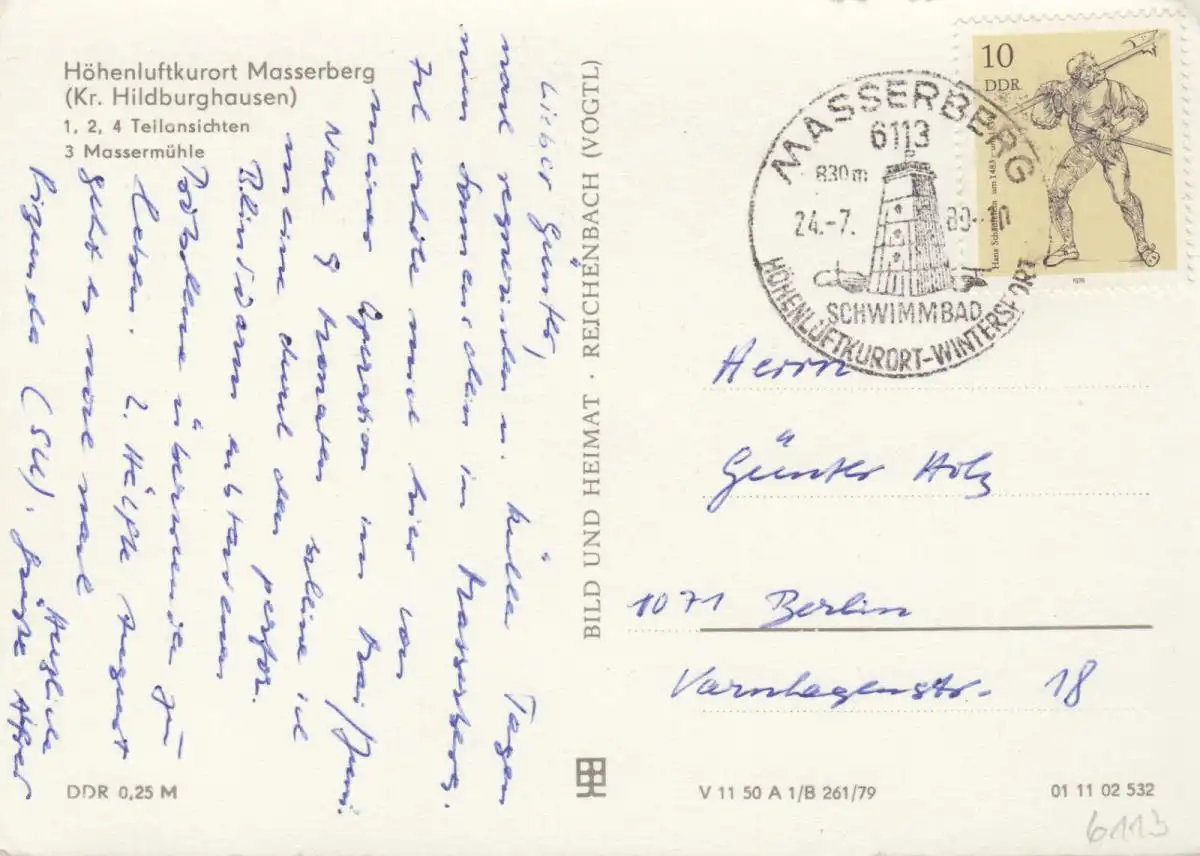 Höhenluftkurort Masserberg
(Kr. Hildburghausen)
1, 2, 4 Teilansichten
3 Massermühle
Lieber Günter,
nach regnerischen u. kühlen Tagen
nun Sonnenschein in Masserberg.
Ich erhole mich hier von
meiner Operation im Mai/Juni.
Nach 9 Monaten scheine ich
meine durch den perfor.
Blinddarm entstandenen
Probleme überwunden zu
haben. 2. Hälfte August
geht es noch mal nach
(SU). Herzliche
Grüße
BILD UND HEIMAT · REICHENBACH (VOGTL)
DDR 0,25 M
10
DDR
Hans Schäufelein um 1483
1978
MASSERBERG
6113
830m
24.-7. 80
SCHWIMMBAD
HÖHENLUFTKURORT-WINTERSPORT
Herrn
Günter Holz
1071 Berlin
Varnhagenstr. 18
V 11 50 A 1/B 261/79
01 11 02 532
6113